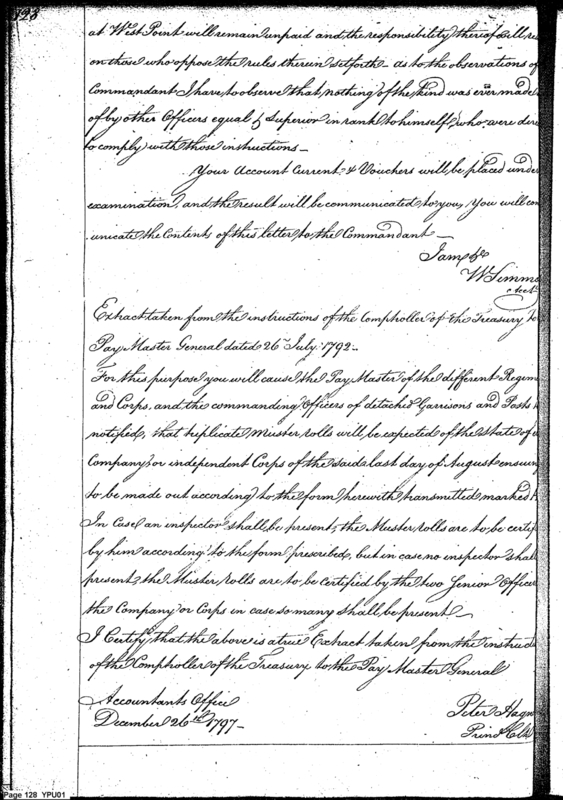 128
at West Point will remain unpaid and the responsibility thereof will re
on those who oppose the rules therein setforth – as to the observations of
Commandant I have to observe that nothing of the kind was ever made
of by other Officers equal & Superior in rank to himself, who were dire
to comply with those instructions –
Your Account Current & Vouchers will be placed unde
examination, and the result will be communicated to you, You will com
unicate the Contents of this letter to the Commandant –
I am &c
W Simmo
Acct
Extract taken from the instructions of the Comptroller of the Treasury to
Pay Master General dated 26th July 1792 –
For this purpose you will cause the Pay Master of the different Regim
and Corps, and the commanding Officers of detached Garrisons and Posts
notified, that triplicate Muster rolls will be expected of the state of
Company or independent Corps of the said last day of August ensuing
to be made out according to the form herewith transmitted marked
In Case an inspector shall be present, the Muster rolls are to be certif
by him according to the form prescribed, but in case no inspector shall
present, the Muster rolls are to be certified by the two Senior Officer
the Company or Corps in case so many shall be present –
I Certify that the above is a true Extract taken from the instructi
of the Comptroller of the Treasury to the Pay Master General
Accountants Office
December 26th 1797 –
Peter Hagn
Prin Clk
Page 128 YPU01